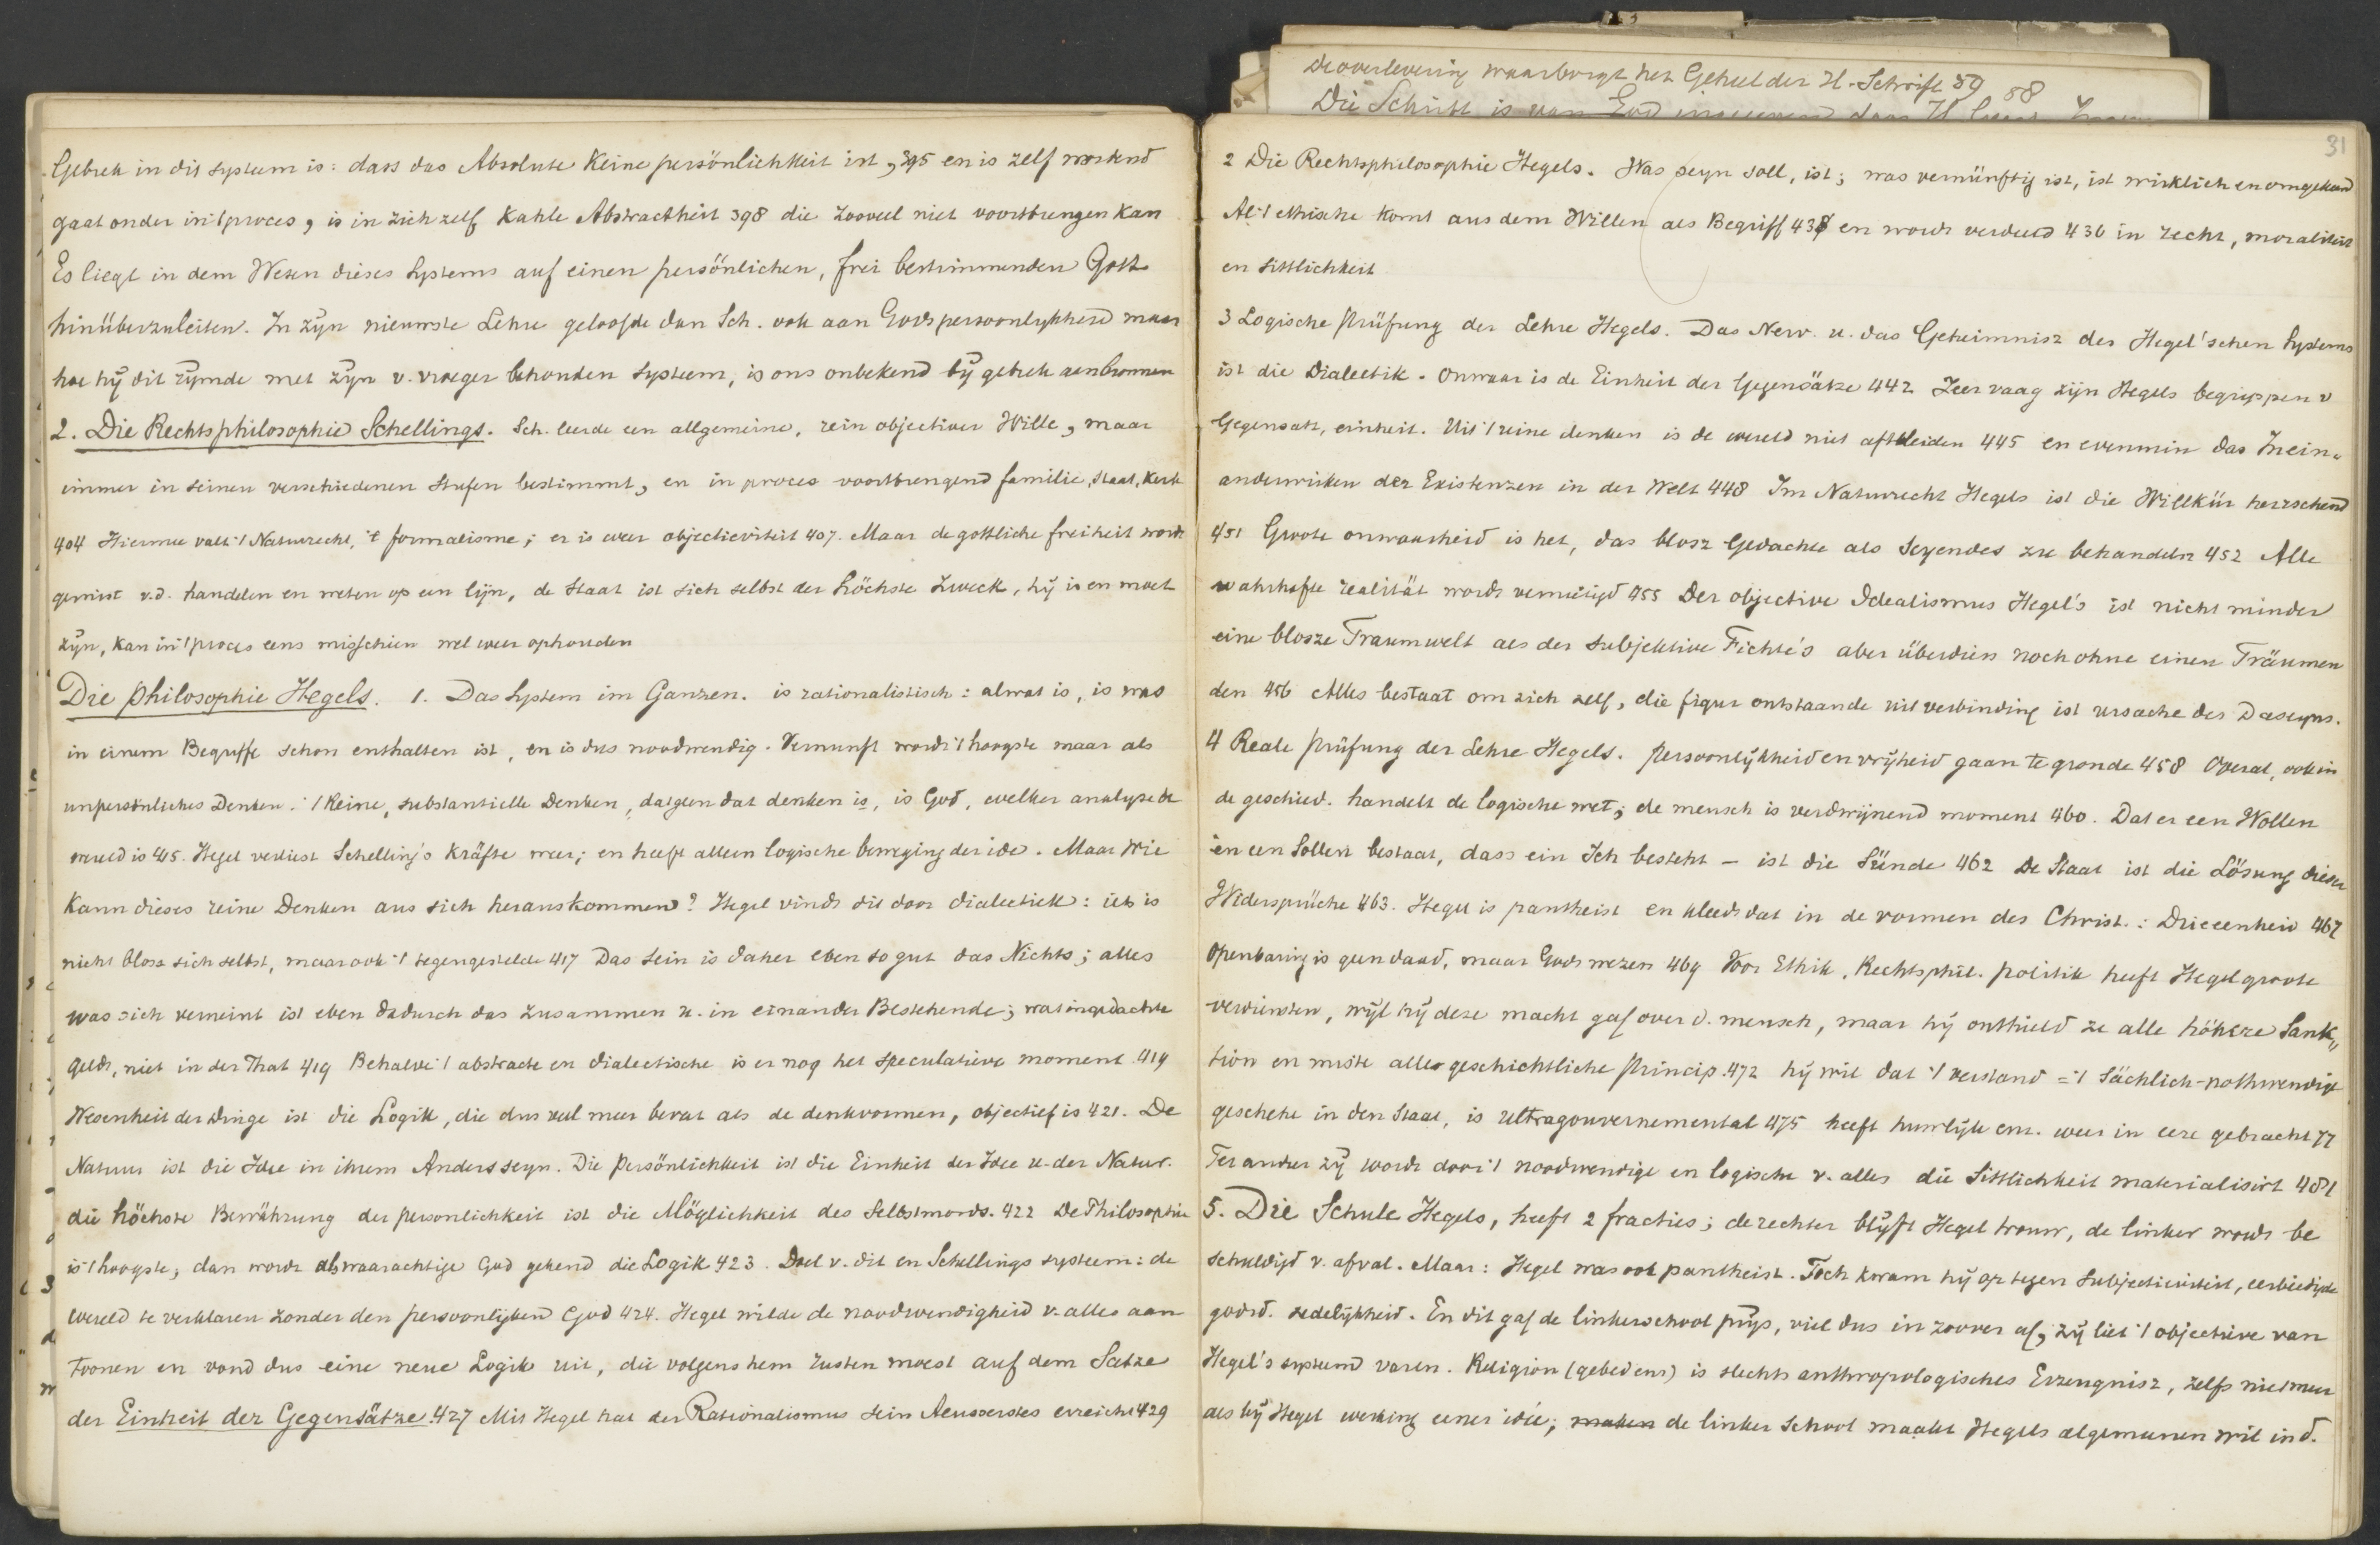 Gebrek in dit systeem is: dass das Absolute keine persönlichkeit ist, 395 en is zelf wordend
gaat onder in 't proces, is in zich zelf kahle Abstractheit 398 die zooveel niet voortbrengen kan
Es liegt in dem Wesen dieses Systems auf einen persönlichen, frei bestimmenden Gott
hinüberzuleiten. In zijn nieuwste Lehre geloofde dan Sch. ook aan Gods persoonlykheid maar
hoe hij dit rijmde met zijn v. vroeger behouden systeem, is ons onbekend bij gebrek aen bronnen
2. Die Rechtsphilosophie Schellings. Sch. leerde een allgemeine, rein objectiver Wille, maar
immer in seinen verschiedenen Stufen bestimmt, en in proces voortbrengend familie, staat, kerk
404 Hiermee valt 't Naturrecht, 't formalisme; er is weer objectiviteit 407. Maar de gottliche freiheit wordt
gemist v.d. handelen en weten op een lijn, de Staat ist sich selbst der höchste Zweck, hij is en moet
zijn, kan in 't proces eens misschien wel weer ophouden
Die philosophie Hegels. 1. Das System im Ganzen. is rationalistisch: al wat is, is was
in einem Begriffe schon enthalten ist, en is dus noodwendig. Vernunft wordt 't hoogste maar als
unpersönliches Denken. 't Reine, substantielle Denken, datgen dat denken is, is God, welker analyse de
wereld is 415. Hegel verliest Schelling's Kräfte weer; en heeft alleen logische beweging der idee. Maar Wie
kann dieses reine Denken aus sich herauskommen? Hegel vindt dit door dialectiek: iets is
nicht bloss sich selbst, maar ook 't tegengestelde 417 Das Sein is daher eben so gut das Nichts; alles
was sich verneint ist eben dadurch das Zusammen u. in einander Bestehende; wat in gedachte
geldt, niet in der That 419 Behalve 't abstracte en dialectische is er nog het speculatieve moment 419
Wesenheit der Dinge ist die Logik, die dus veel meer bevat als de denkvormen, objectief is 421. De
Natuur ist die Idee in ihrem Andersseyn. Die Persönlichkeit ist die Einheit der Idee u. der Natur.
die höchste Bewährung der personlichkeit ist die Möglichkeit des Selbstmords. 422 De Philosophie
is 't hoogste; dan wordt als waarachtige God gekend die Logik 423. Doel v. dit en Schellings systeem: de
wereld te verklaren zonder den persoonlijken God 424. Hegel wilde de noodwendigheid v. alles aan
toonen en vond dus eine neue Logik uit, die volgens hem rusten moest auf dem Satze
der Einheit der Gegensätze. 427 Mit Hegel hat der Rationalismus sein Aeusserstes erreicht 429
De overlevering waarborgt het Geheel der H. Schrift 59 88
Die Schrift is van God
31
2 Die Rechtsphilosophie Hegels. Was seyn soll, ist; was vernünftig ist, ist wirklich en omgekeerd
Al 't ethische komt aus dem Willen als Begriff 43 en wordt verdeeld 436 in recht, moraliteit
en Sittlichkeit
3 Logische Prüfung der Lehre Hegels. Das Nerv. u. das Geheimnisz des Hegel'schen Systems
ist die Dialectik. Onwaar is de Einheit der Gegensätze 442 Zeer vaag zijn Hegels begrippen v
Gegensatz, einheit. Uit 't reine denken is de wereld niet af te leiden 445 en evenmin das Inein-
anderwirken der Existenzen in der Welt 448 Im Naturrecht Hegels ist die Willkür herrschend
451 Groote onwaarheid is het, das blosz Gedachte als Seyendes zu behandeln 452 Alle
wahrhafte realität wordt vernietigd 455 Der objective Idealismus Hegel's ist nicht minder
eine blosze Traumwelt als der subjektive Fichte's aber überdies noch ohne einen Träumen
den 456 Alles bestaat om zich zelf, die figur ontstaande uit verbinding ist ursache des Daseyns.
4 Reale Prüfung der Lehre Hegels. Persoonlijkheid en vrijheid gaan te gronde 458 Overal, ook in
de geschied. handelt de logische wet; de mensch is verdwijnend moment 460. Dat er een Wollen
en een Sollen bestaat, dass ein Ich besteht – ist die Sünde 462 De Staat ist die Lösung dieser
Widersprüche 463. Hegel is pantheist en kleedt dat in de vormen des Christ.: Drieeenheid 467
Openbaring is geen daad, maar Gods wezen 469 Voor Ethik, Rechtsphil. politik heeft Hegel groote
verdiensten, wijl hij deze macht gaf over d. mensch, maar hij onthield ze alle höhere Sank„
tion en miste alles geschichtliche Princip. 472 hij wil dat 't verstand = 't Sächlich-nothwendige
geschehe in den Staat, is ultragouvernemental 475 heeft huwlijk enz. weer in eere gebracht 77
Ter andere zij wordt door 't noodwendige en logische v. alles die Sittlichkeit materialisirt 481
5. Die Schule Hegels, heeft 2 fracties; de rechter blijft Hegel trouw, de linker wordt be
schuldigd v. afval. Maar: Hegel was ook pantheist. Toch kwam hij op tegen subjectiviteit, eerbiedigde
godsd. zedelijkheid. En dit gaf de linkerschool prijs, viel dus in zoover af, zij liet 't objectieve van
Hegel's systeem varen. Religion (gebed enz) is slechts anthropologisches Erzeugnisz, zelfs niet meer
als bij Hegel werking eener idée; maken de linker school maakt Hegels algemeenen wil in d.